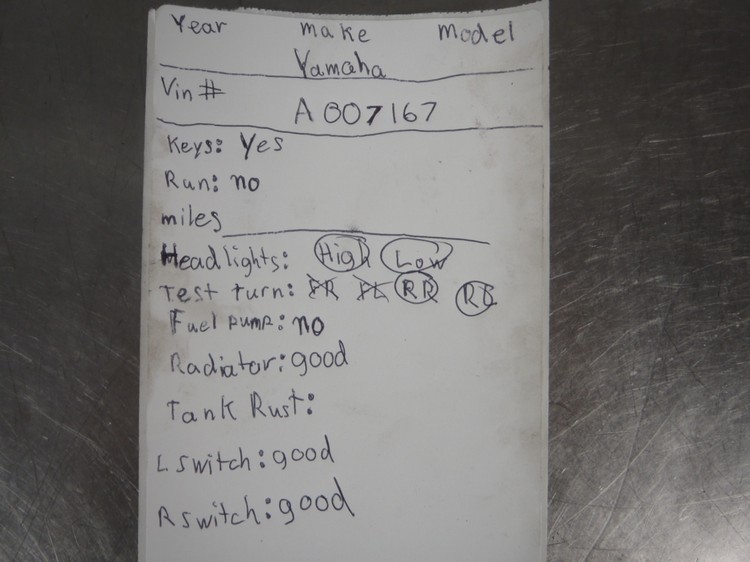 Year make Model
Yamaha
Vin # A007167
Keys: Yes
Run: no
miles
Headlights: High Low
Test turn: FR FL RR RL
Fuel pump: no
Radiator: good
Tank Rust:
L switch: good
R switch: good